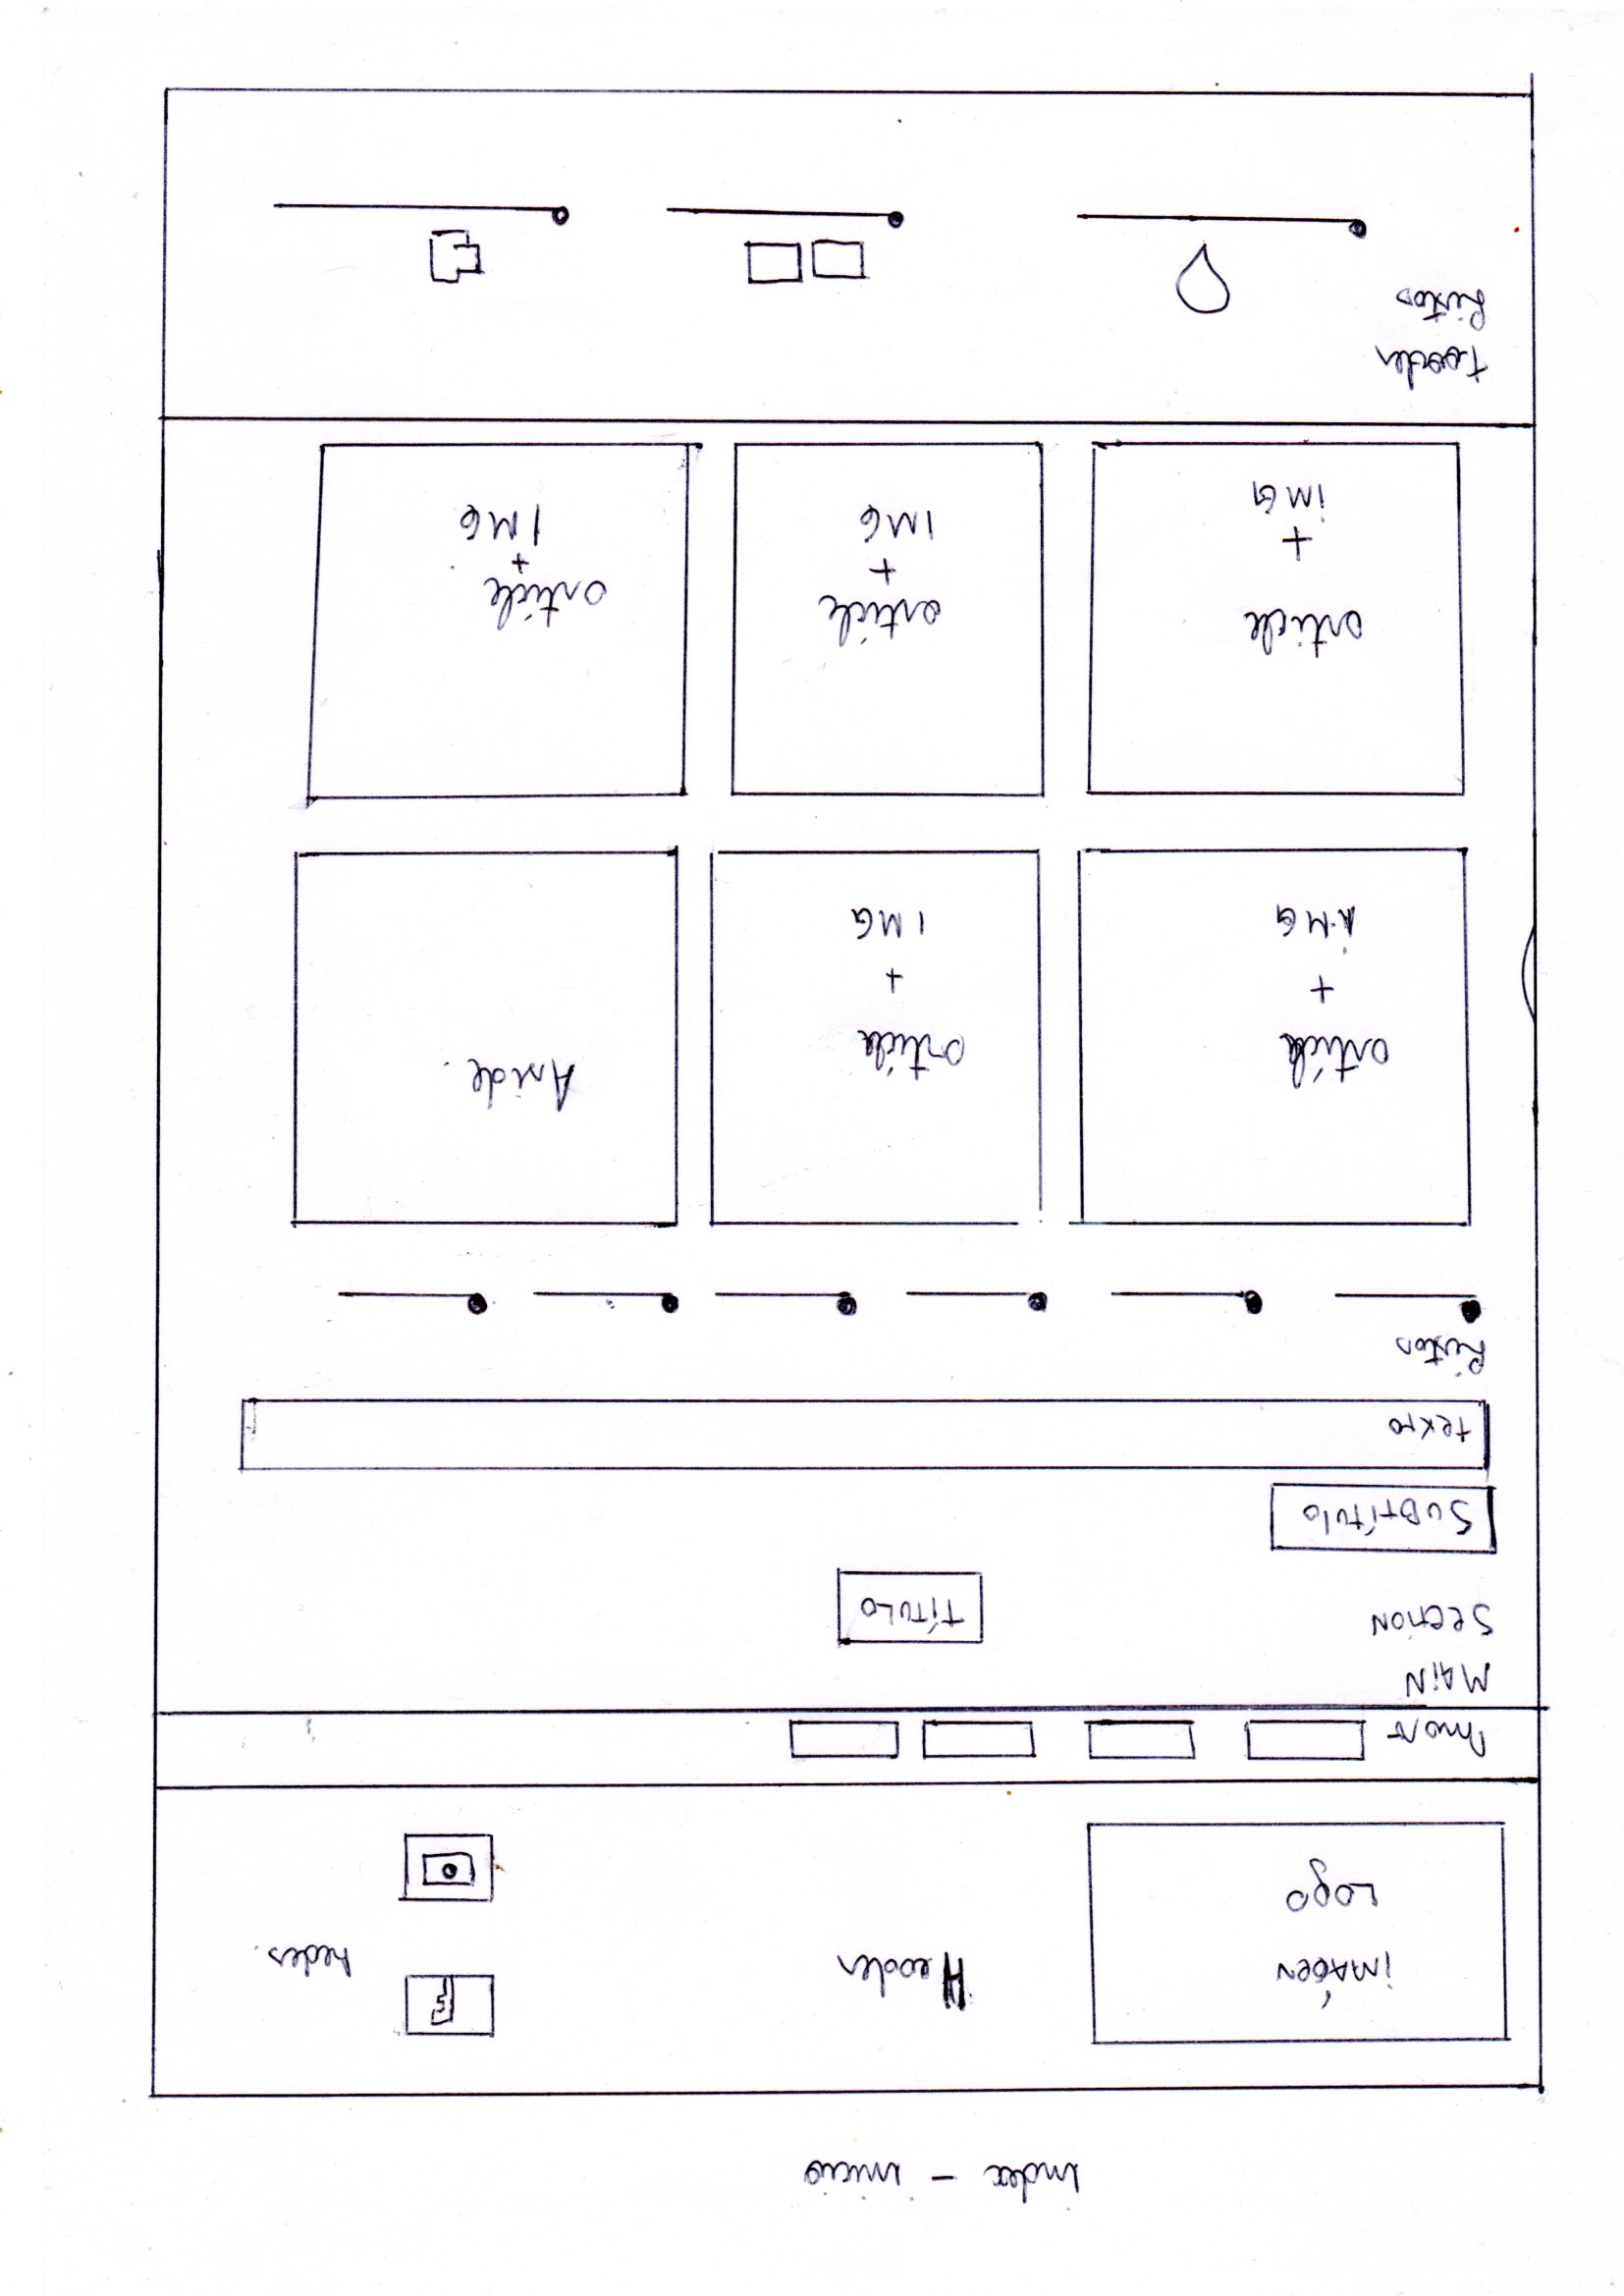 index - inicio
IMÁGEN
LOGO
Header
F
redes.
nav
MAIN
SECTION
TÍTULO
SUBTÍTULO
texto
Listas
article
+
IMG
article
+
IMG
Aside.
article
+
IMG
article
+
IMG
article
+
IMG
Fooder
Listas